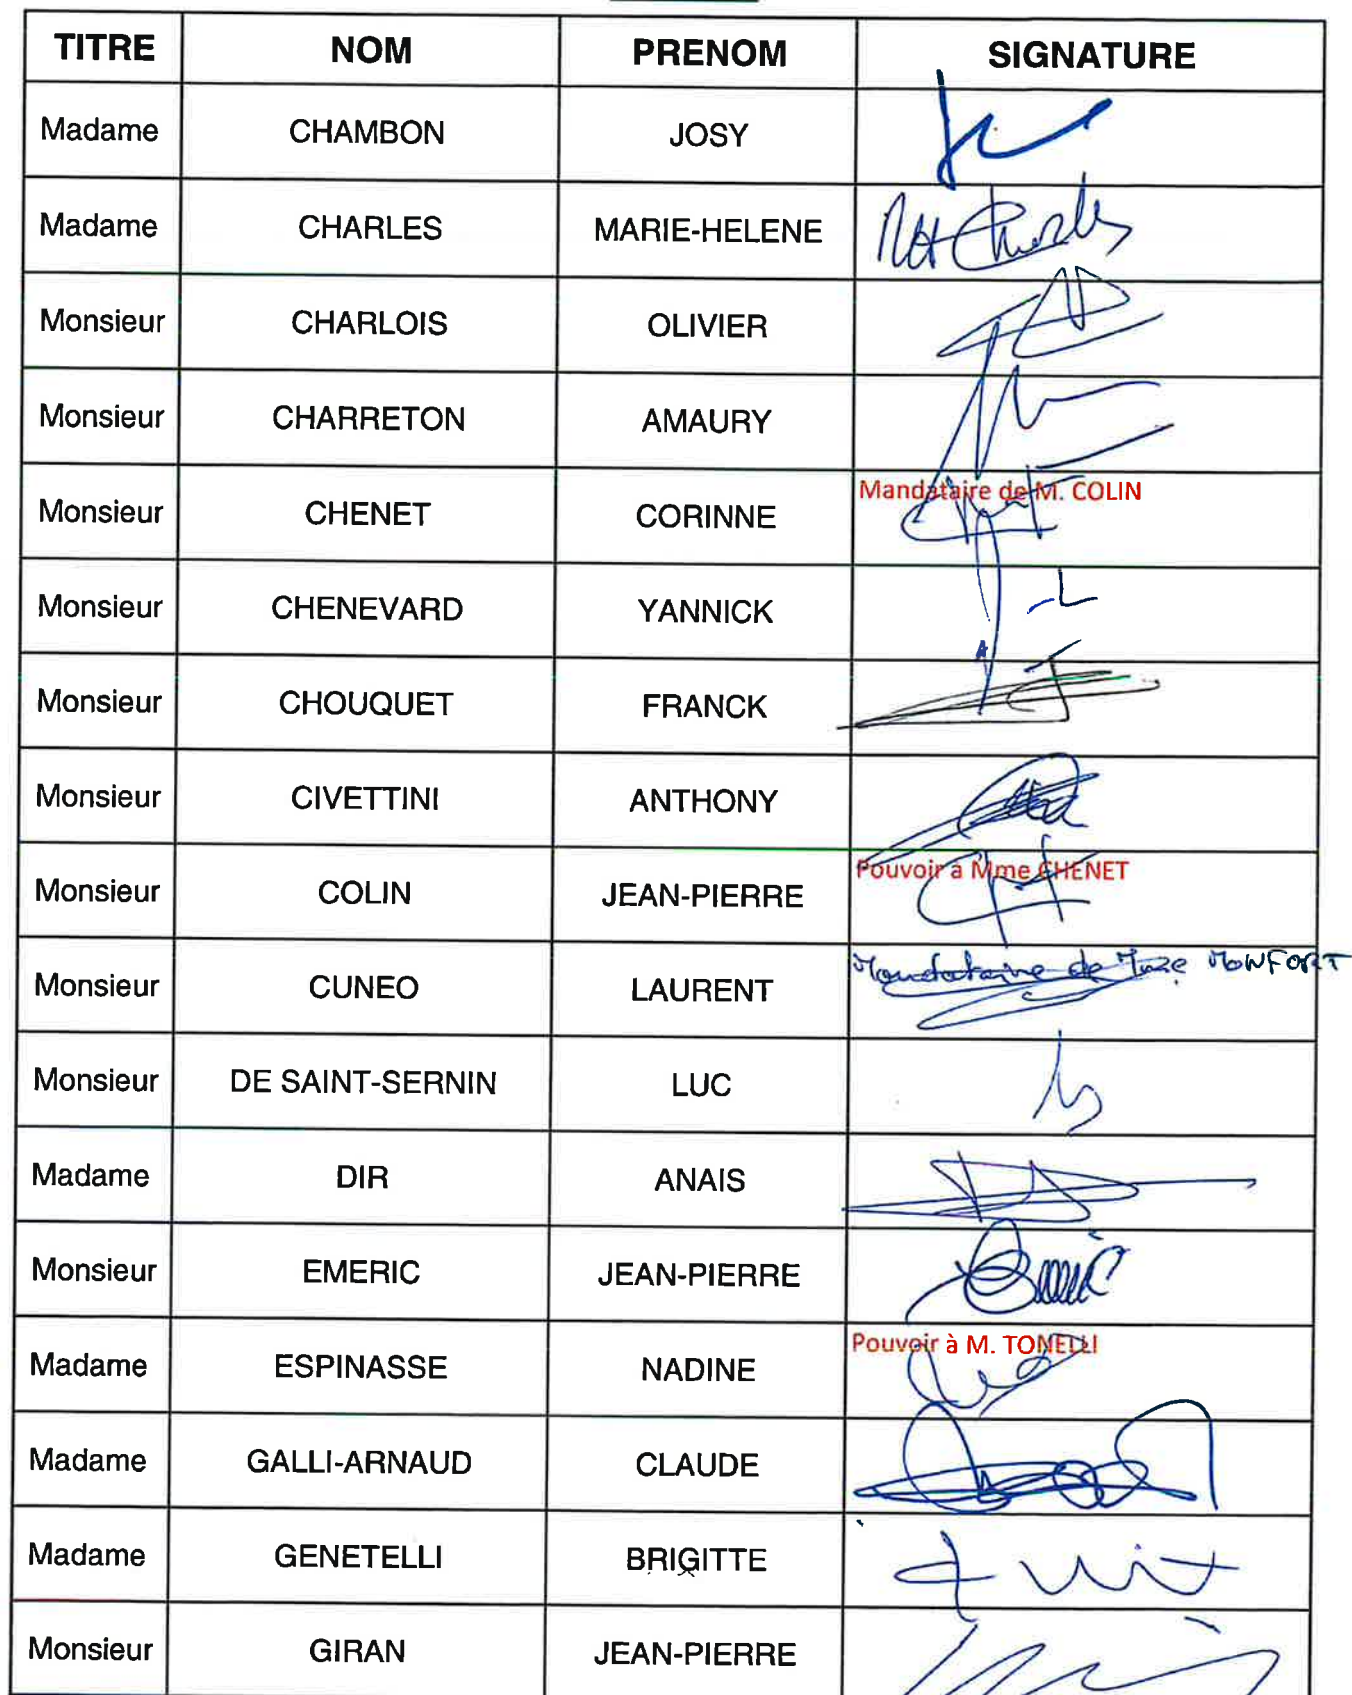 TITRE NOM PRENOM SIGNATURE
Madame CHAMBON JOSY
Madame CHARLES MARIE-HELENE MH Charles
Monsieur CHARLOIS OLIVIER
Monsieur CHARRETON AMAURY
Monsieur CHENET CORINNE Mandataire de M. COLIN
Monsieur CHENEVARD YANNICK
Monsieur CHOUQUET FRANCK
Monsieur CIVETTINI ANTHONY
Monsieur COLIN JEAN-PIERRE Pouvoir à Mme CHENET
Monsieur CUNEO LAURENT Mandataire de Mme MONFORT
Monsieur DE SAINT-SERNIN LUC
Madame DIR ANAIS
Monsieur EMERIC JEAN-PIERRE
Madame ESPINASSE NADINE Pouvoir à M. TONELLI
Madame GALLI-ARNAUD CLAUDE
Madame GENETELLI BRIGITTE
Monsieur GIRAN JEAN-PIERRE